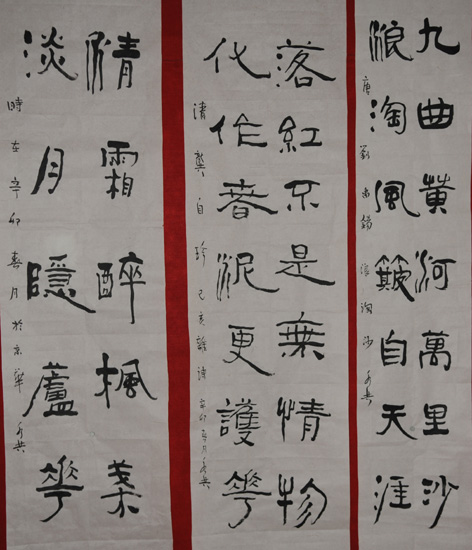 九曲黃河萬里沙
浪淘風簸自天涯
唐劉禹錫浪淘沙
落紅不是無情物
化作春泥更護花
清龔自珍己亥雜詩辛卯春月
清霜醉楓葉
淡月隱蘆花
時在辛卯春月於京華